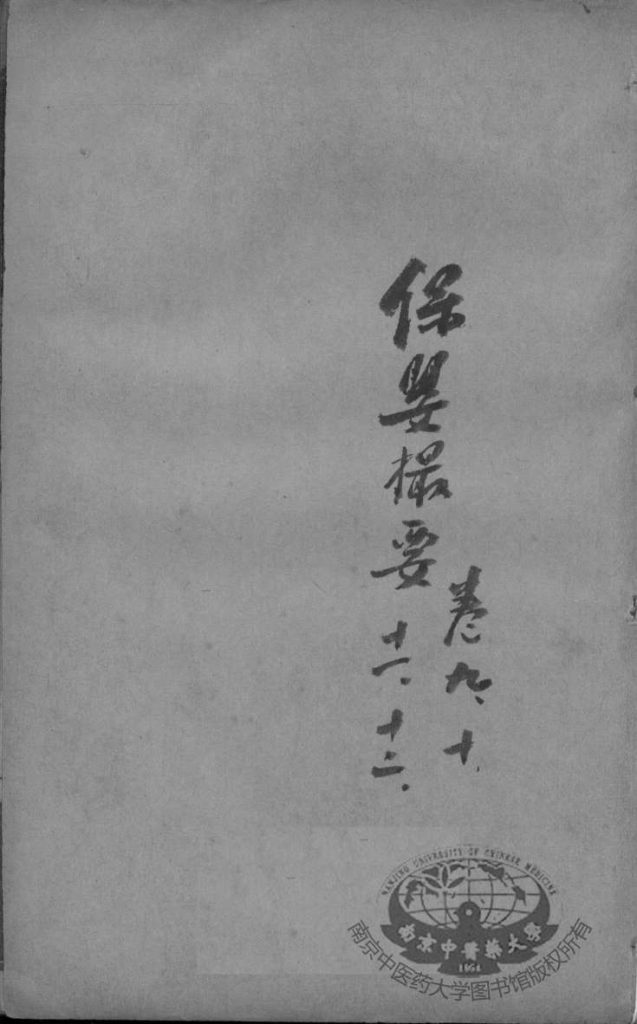 保嬰撮要
卷九、十、
十一、十二、
NANJING UNIVERSITY OF CHINESE MEDICINE
南京中醫藥大學
1954
南京中医药大学图书馆版权所有